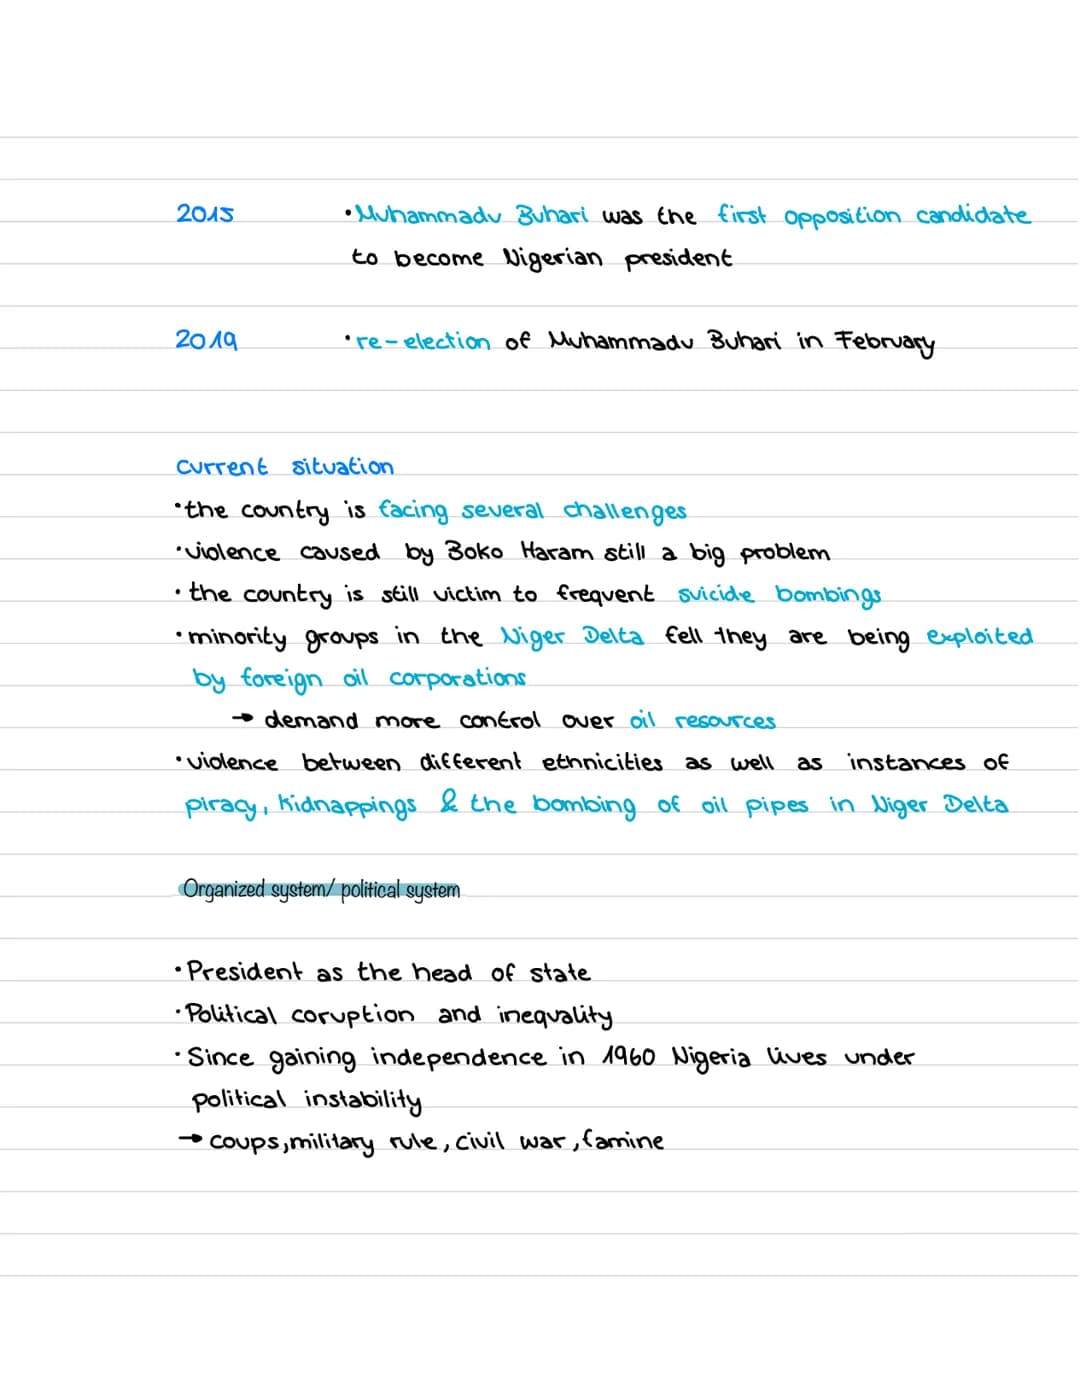 2015 •Muhammadu Buhari was the first opposition candidate
to become Nigerian president
2019 •re-election of Muhammadu Buhari in February
current situation
•the country is facing several challenges
•violence caused by Boko Haram still a big problem
•the country is still victim to frequent suicide bombings
•minority groups in the Niger Delta fell they are being exploited
by foreign oil corporations
→ demand more control over oil resources
•violence between different ethnicities as well as instances of
piracy, kidnappings & the bombing of oil pipes in Niger Delta
Organized system/ political system
•President as the head of state
•Political coruption and inequality
•Since gaining independence in 1960 Nigeria lives under
political instability
→ coups, military rule, civil war, famine